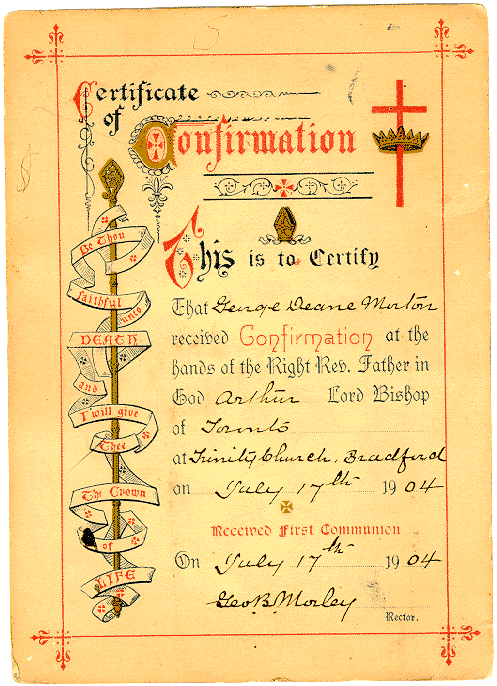 Certificate
of
Confirmation
This is to Certify
That George Deane Morton
received Confirmation at the
hands of the Right Rev. Father in
God Arthur Lord Bishop
of Toronto
at Trinity Church, Bradford
on July 17th 1904
Received First Communion
On July 17th 1904
Geo B Morley
Rector.
Be Thou
faithful
unto
DEATH
and
I will give
Thee
The Crown
of
LIFE